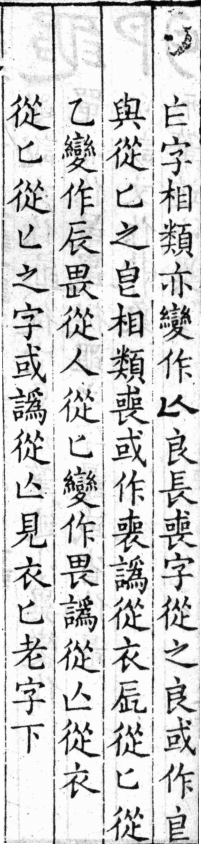 亡字相類亦變作亾良長喪字從之良或作皀
與從匕之皀相類喪或作䘮譌從衣辰從匕從
乙變作辰畏從人從匕變作畏譌從亾從衣
從匕從匕之字或譌從亾見衣匕老字下